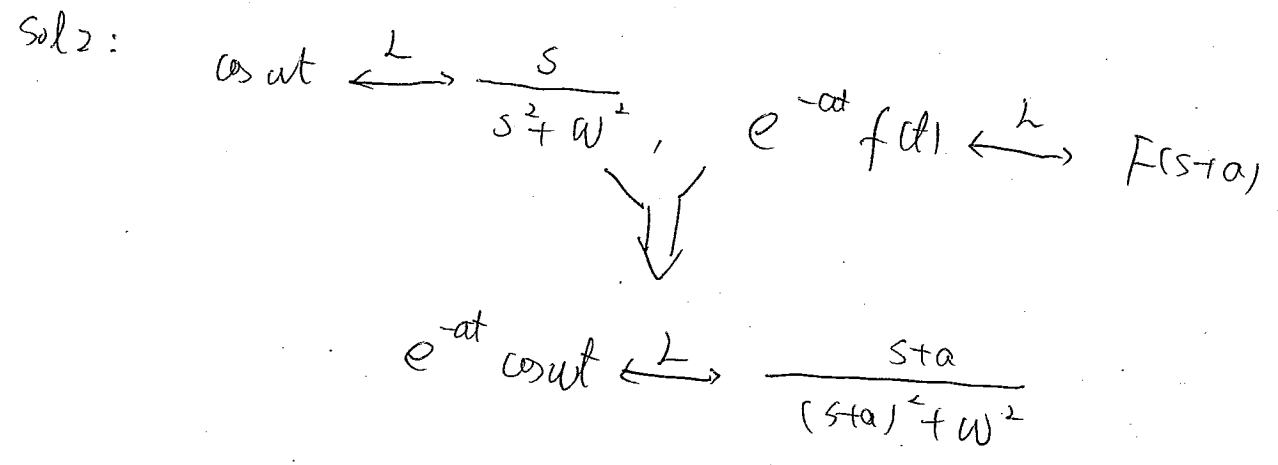 Sol 2:
cos ωt ⟷^L s/(s²+ω²), e^{-at} f(t) ⟷^L F(s+a)
⇓
e^{-at} cos ωt ⟷^L (s+a)/((s+a)²+ω²)